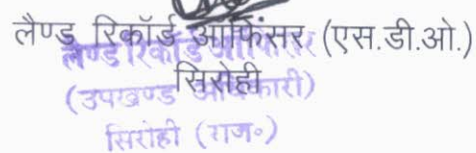 लैण्ड रिकॉर्ड ऑफिसर (एस.डी.ओ.)
लैण्ड रिकार्ड ऑफिसर
सिरोही
(उपखण्ड अधिकारी)
सिरोही (राज०)